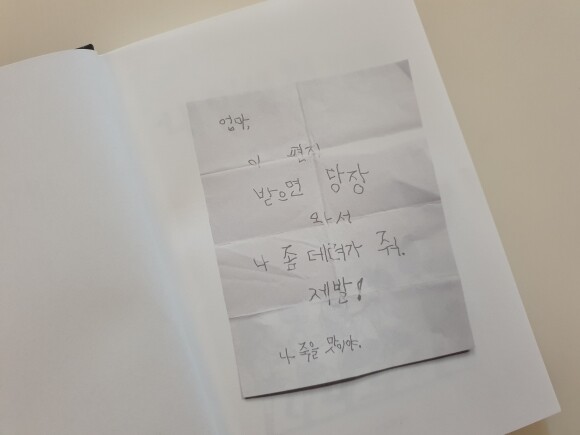 엄마,
이 편지
받으면 당장
와서
나 좀 데려가 줘.
제발!
나 죽을 맛이야.